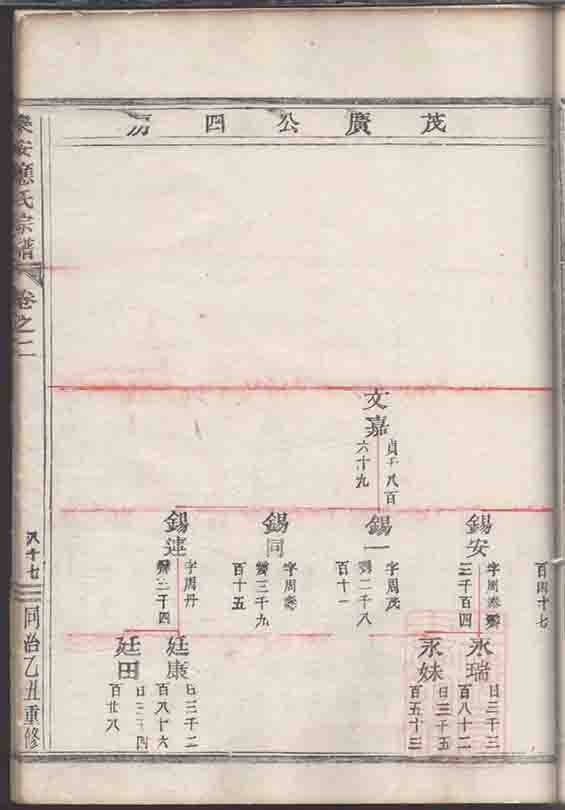 茂廣公四房
百四十七
文嘉
貞千八百
六十九
錫安
三千百四
錫一
字周茂
二千八
百十一
錫同
三千九
百十五
錫連
字周丹
二千四
永瑞
日三千三
百八十二
永妹
日三千五
百五十三
廷康
日三千二
百八十六
廷田
百廿八
樂安應氏宗譜
卷之二
八十七
同治乙丑重修